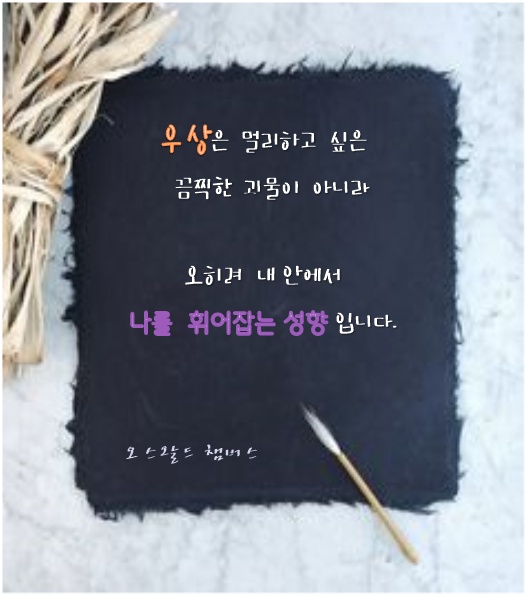 우상은 멀리하고 싶은
끔찍한 괴물이 아니라
오히려 내 안에서
나를 휘어잡는 성향 입니다.
오스왈드 챔버스